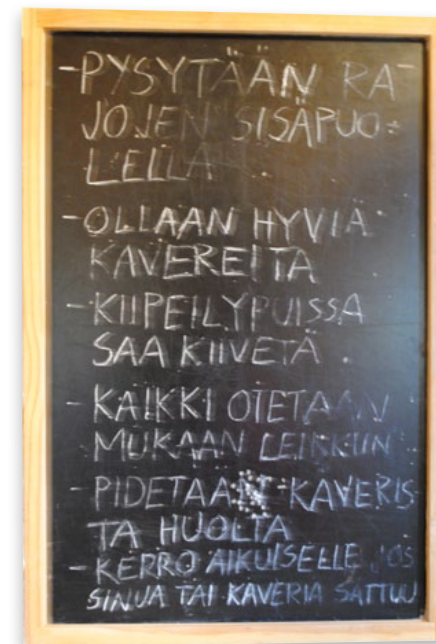 - PYSYTÄÄN RA-
JOJEN SISÄPUO-
LELLA
- OLLAAN HYVIÄ
KAVEREITA
- KIIPEILYPUISSA
SAA KIIVETÄ .
- KAIKKI OTETAAN
MUKAAN LEIKKIIN
- PIDETÄÄN KAVERIS-
TA HUOLTA
- KERRO AIKUISELLE JOS
SINUA TAI KAVERIA SATTUU